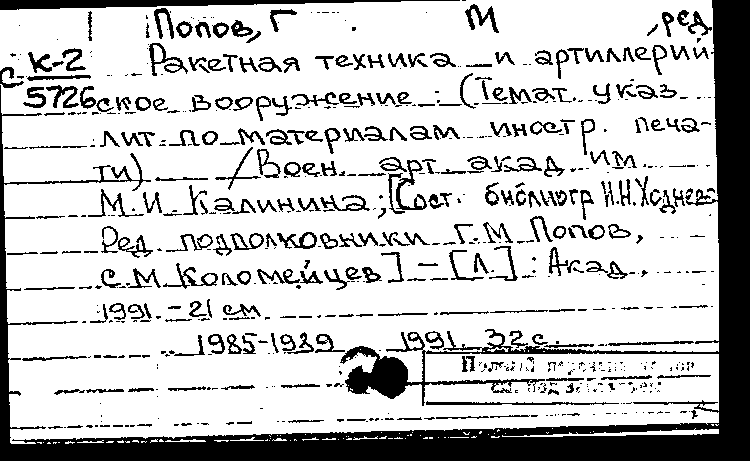 Попов, Г. М , ред
К-2 Ракетная техника и артиллерий-
с 5726 ское вооружение : (Темат. указ.
лит. по материалам иностр. печа-
ти) / Воен. арт. акад им.
М.И. Калинина ; [Сост. библиогр Н.Н. Ходнева
Ред. подполковники Г.М Попов,
С.М Коломейцев] – [Л.] : Акад,
1991. – 21 см.
1985-1989 1991. 32 с.
Полный перечень
см. под заглавием